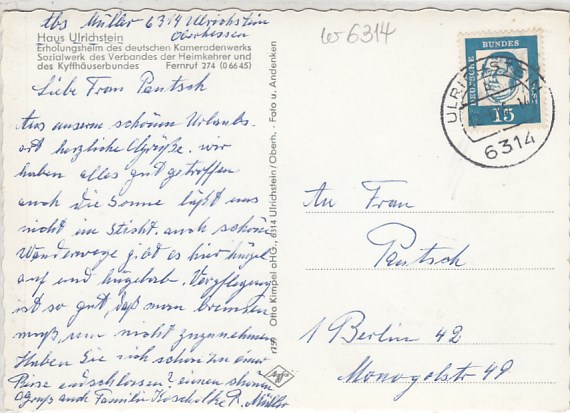 Abs Müller 6314 Ulrichstein
Oberhessen
Haus Ulrichstein
Erholungsheim des deutschen Kameradenwerks
Sozialwerk des Verbandes der Heimkehrer und
des Kyffhäuserbundes Fernruf 274 (0 66 45)
Liebe Frau Pautsch
Aus unserm schönen Urlaubs
ort herzliche Grüße. wir
haben alles gut getroffen
auch die Sonne läßt uns
nicht im Stich. auch schöne
Wanderwege gibt es hier hügel
auf und hügelab. Verpflegung
ist so gut, daß man bremsen
muß, um nicht zuzunehmen
Haben Sie sich schon zu einer
Reise entschlossen? einen schönen
Gruß auch Familie R. Müller
r 1591 Otto Kimpel oHG., 6314 Ulrichstein/Oberh. · Foto u. Andenken
Agfa
w 6314
DEUTSCHE
BUNDES
15
ULRICHST
6314
An Frau
Pautsch
1 Berlin 42
Monogolstr 49